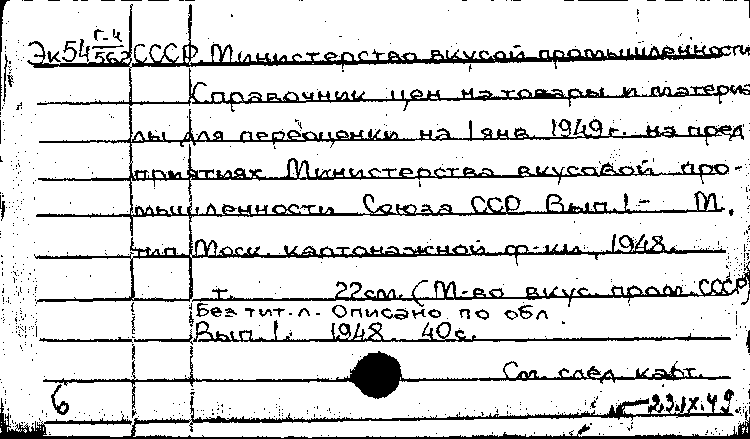 Эк54 Г-4/562 СССР. Министерство вкусой промышленности
Справочник цен на товары и материа
лы для переоценки на 1 янв. 1949 г. на пред
приятиях Министерства вкусовой про-
мышленности Союза ССР Вып. 1- М.,
тип. Моск. картонажной ф-ки, 1948.
т. 22см. (М-во вкус. пром. СССР)
Без тит. л. Описано по обл
Вып. 1. 1948. 40с.
См. след. карт.
6 23.IX.49